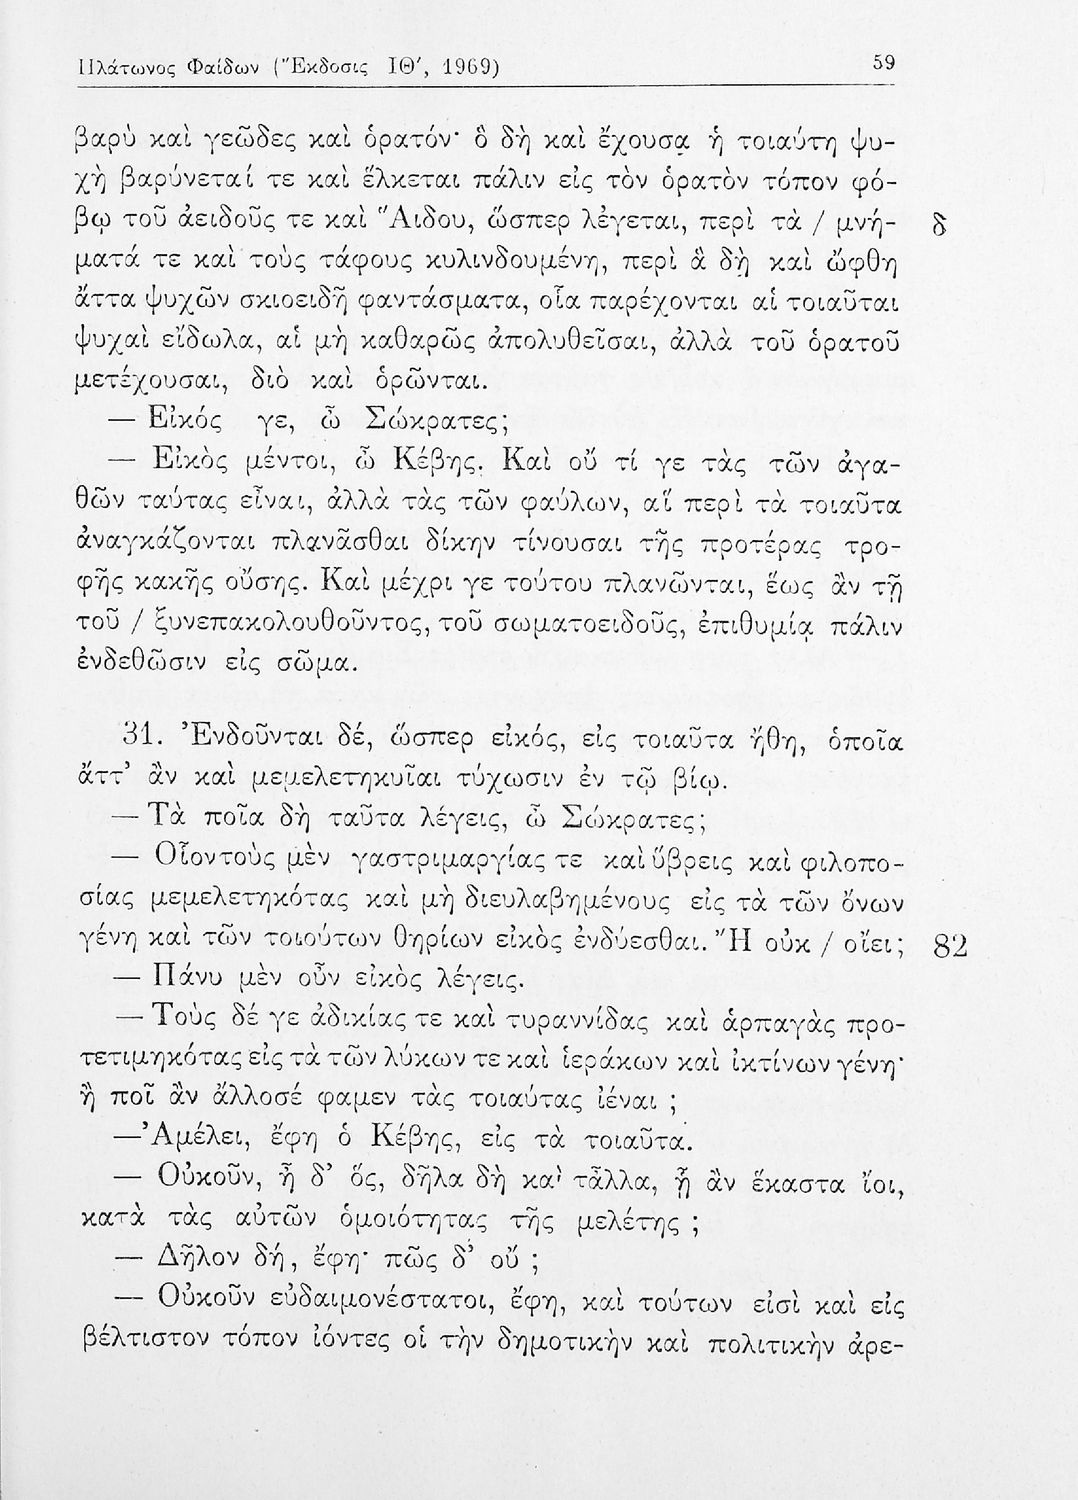 Πλάτωνος Φαίδων (Ἔκδοσις ΙΘ′, 1969) 59
βαρὺ καὶ γεῶδες καὶ ὁρατόν· ὃ δὴ καὶ ἔχουσα ἡ τοιαύτη ψυ-
χὴ βαρύνεταί τε καὶ ἕλκεται πάλιν εἰς τὸν ὁρατὸν τόπον φό-
βῳ τοῦ ἀειδοῦς τε καὶ Ἅιδου, ὥσπερ λέγεται, περὶ τὰ / μνή- δ
ματά τε καὶ τοὺς τάφους κυλινδουμένη, περὶ ἃ δὴ καὶ ὤφθη
ἄττα ψυχῶν σκιοειδῆ φαντάσματα, οἷα παρέχονται αἱ τοιαῦται
ψυχαὶ εἴδωλα, αἱ μὴ καθαρῶς ἀπολυθεῖσαι, ἀλλὰ τοῦ ὁρατοῦ
μετέχουσαι, διὸ καὶ ὁρῶνται.
— Εἰκός γε, ὦ Σώκρατες;
— Εἰκὸς μέντοι, ὦ Κέβης. Καὶ οὔ τί γε τὰς τῶν ἀγα-
θῶν ταύτας εἶναι, ἀλλὰ τὰς τῶν φαύλων, αἳ περὶ τὰ τοιαῦτα
ἀναγκάζονται πλανᾶσθαι δίκην τίνουσαι τῆς προτέρας τρο-
φῆς κακῆς οὔσης. Καὶ μέχρι γε τούτου πλανῶνται, ἕως ἂν τῇ
τοῦ / ξυνεπακολουθοῦντος, τοῦ σωματοειδοῦς, ἐπιθυμίᾳ πάλιν
ἐνδεθῶσιν εἰς σῶμα.
31. Ἐνδοῦνται δέ, ὥσπερ εἰκός, εἰς τοιαῦτα ἤθη, ὁποῖα
ἄττ’ ἂν καὶ μεμελετηκυῖαι τύχωσιν ἐν τῷ βίῳ.
— Τὰ ποῖα δὴ ταῦτα λέγεις, ὦ Σώκρατες;
— Οἷον τοὺς μὲν γαστριμαργίας τε καὶ ὕβρεις καὶ φιλοπο-
σίας μεμελετηκότας καὶ μὴ διευλαβημένους εἰς τὰ τῶν ὄνων
γένη καὶ τῶν τοιούτων θηρίων εἰκὸς ἐνδύεσθαι. Ἢ οὐκ / οἴει; 82
— Πάνυ μὲν οὖν εἰκὸς λέγεις.
— Τοὺς δέ γε ἀδικίας τε καὶ τυραννίδας καὶ ἁρπαγὰς προ-
τετιμηκότας εἰς τὰ τῶν λύκων τε καὶ ἱεράκων καὶ ἰκτίνων γένη·
ἢ ποῖ ἂν ἄλλοσέ φαμεν τὰς τοιαύτας ἰέναι ;
—Ἀμέλει, ἔφη ὁ Κέβης, εἰς τὰ τοιαῦτα.
— Οὐκοῦν, ἦ δ’ ὅς, δῆλα δὴ καὶ τἆλλα, ᾗ ἂν ἕκαστα ἴοι,
κατὰ τὰς αὐτῶν ὁμοιότητας τῆς μελέτης ;
— Δῆλον δή, ἔφη· πῶς δ’ οὔ ;
— Οὐκοῦν εὐδαιμονέστατοι, ἔφη, καὶ τούτων εἰσὶ καὶ εἰς
βέλτιστον τόπον ἰόντες οἱ τὴν δημοτικὴν καὶ πολιτικὴν ἀρε-